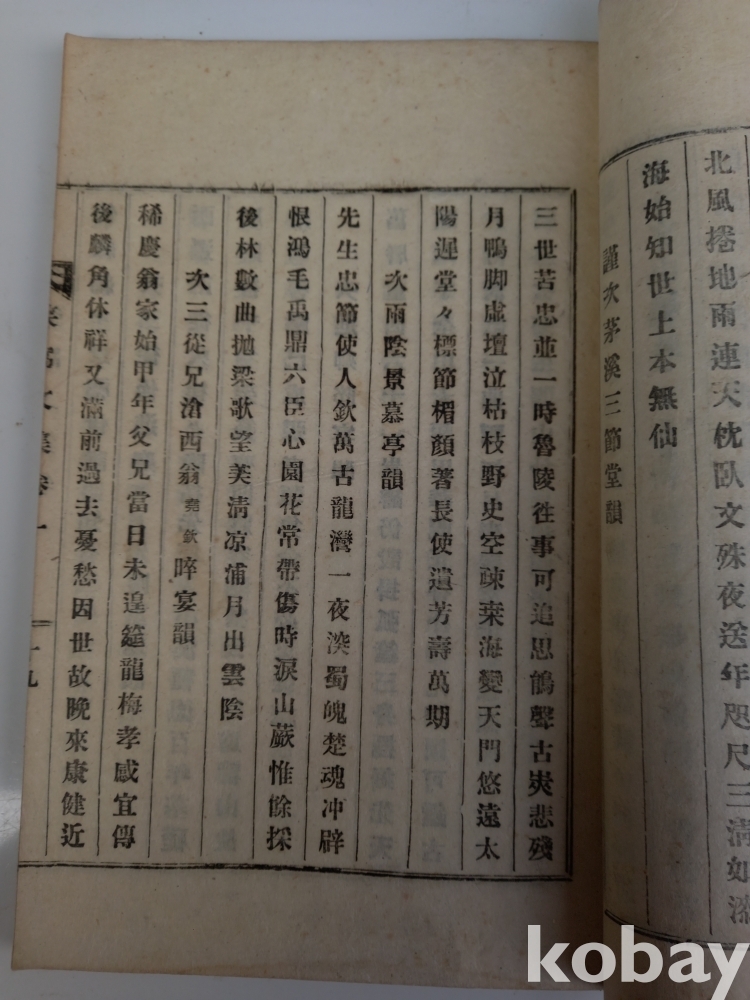 北風捲地雨連天枕臥文殊夜送年咫尺三淸如漲
海始知世上本無仙
謹次茅溪三節堂韻
三世苦忠並一時魯陵往事可追思鵑聲古峽悲殘
月鴨脚虛壇泣枯枝野史空疎桒海變天門悠遠太
陽遲堂々標節楣顔著長使遺芳壽萬期
次雨陰景慕亭韻
先生忠節使人欽萬古龍灣一夜深蜀魄楚魂冲辟
恨鴻毛禹鼎六臣心園花常帶傷時淚山蕨惟餘採
後林數曲拋梁歌望美淸凉浦月出雲陰
次三從兄滄西翁堯欽晬宴韻
稀慶翁家始甲年父兄當日未遑筵龍梅孝感宜傳
後麟角休祥又滿前過去憂愁因世故晚來康健近
文集卷一 十九
kobay